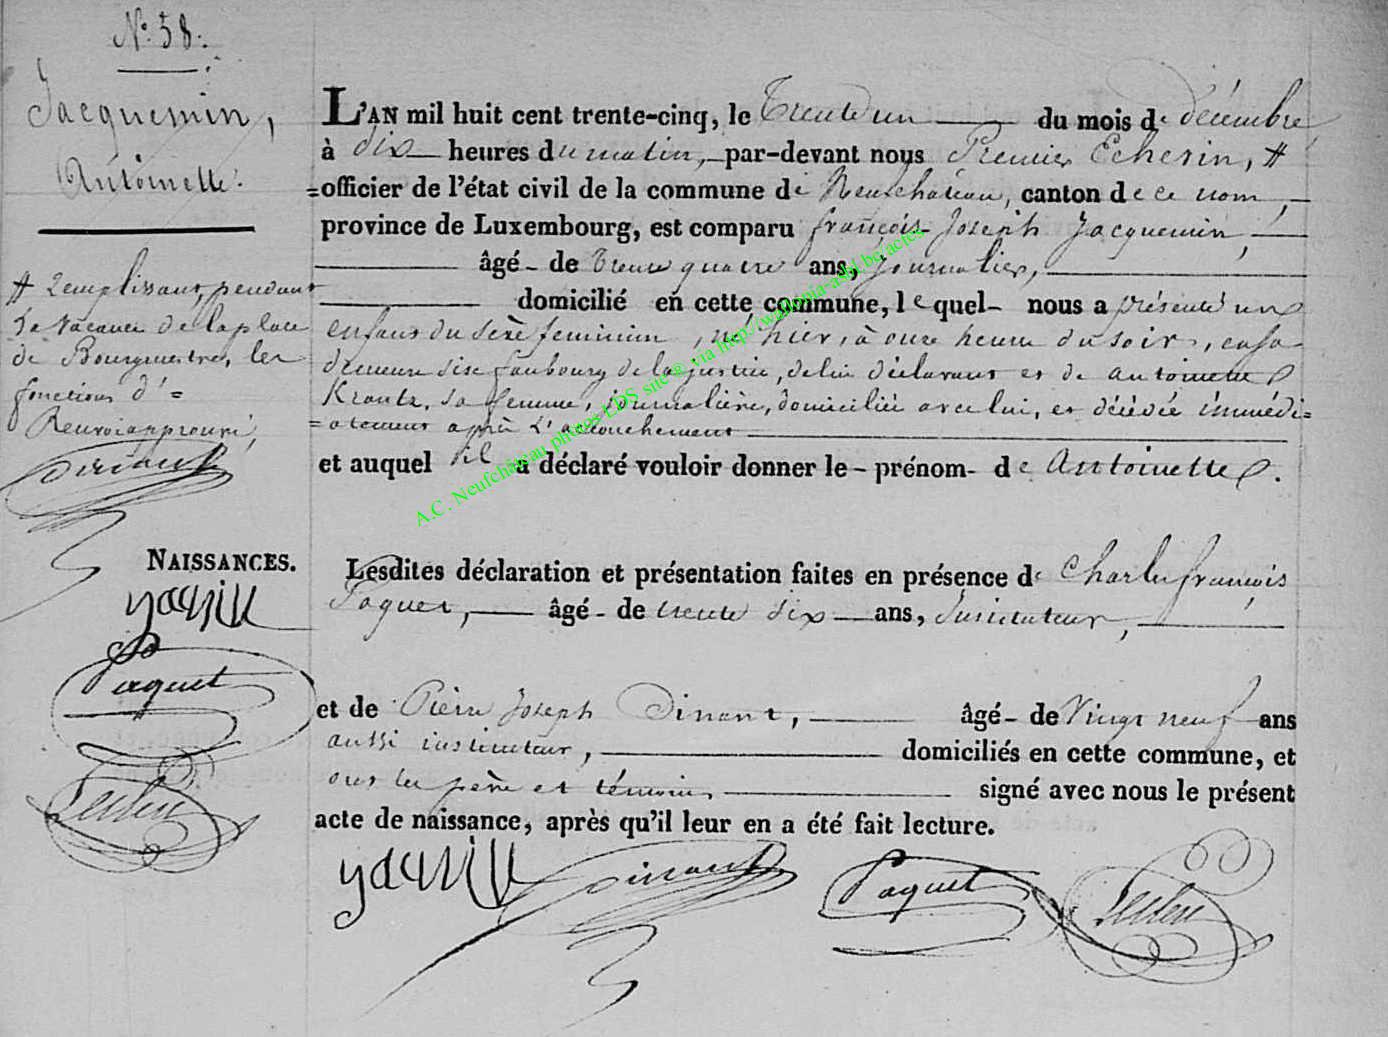 N° 58.
Jacquemin,
Antoinette.
L'AN mil huit cent trente-cinq, le Trente un du mois de décembre
à dix heures du matin, par-devant nous Premier Echevin, #
=officier de l'état civil de la commune de Neufchâteau, canton de ce nom,
province de Luxembourg, est comparu françois Joseph Jacquemin,
âgé - de trente quatre ans, Journalier,
domicilié en cette commune, lequel - nous a présenté un
enfant du sexe feminin, né hier, à onze heures du soir, en sa
demeure sise faubourg de la justice, de lui déclarant et de antoinette
Krantz, sa femme, journalière, domiciliée avec lui, et décédée immédi=
=atement après l'accouchement
et auquel il a déclaré vouloir donner le - prénom - de Antoinette.
# Remplissant, pendant
la vacance de la place
de Bourgmestre, les
fonctions d'=
Renvoi approuvé,
Dinant
NAISSANCES.
Paquet
Leclerc
Lesdites déclaration et présentation faites en présence de Charles françois
Paquet, âgé - de trente six ans, Instituteur,
et de Pierre Joseph Dinant, âgé - de Vingt neuf ans
aussi instituteur, domiciliés en cette commune, et
ont les père et témoins signé avec nous le présent
acte de naissance, après qu'il leur en a été fait lecture.
Dinant Paquet Leclerc
A.C. Neufchâteau photos LDS situé @ via http://wallonia-asbl.be/actes